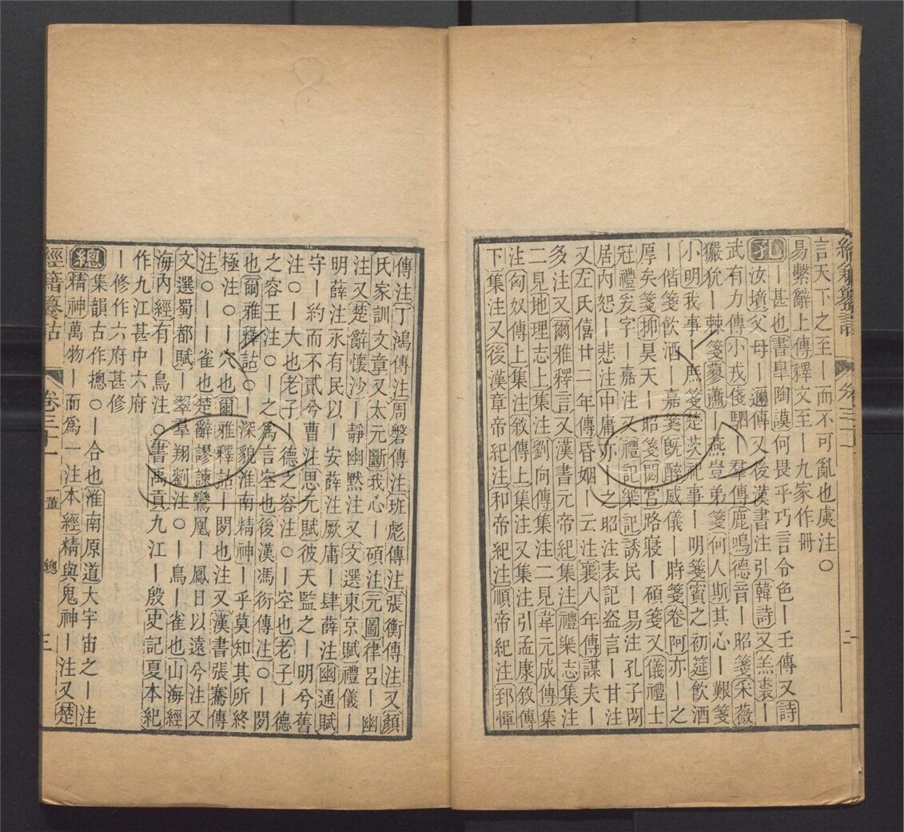 言天下之至｜而不可亂也虞注〇
易繫辭上傳釋文至｜九家作冊
孔｜甚也書皐陶謨何畏乎巧言令色｜壬傳又詩
汝墳父母｜邇傳又後漢書注引韓詩又羔裘｜
武有力傳小戎俴駟｜羣傳鹿鳴德音｜昭箋采薇
玁狁｜棘箋蓼蕭｜燕豈弟箋何人斯其心｜艱箋
小明我事｜庶箋楚茨祀事｜明箋賓之初筵飲酒
｜偕箋飲酒｜嘉箋旣醉威儀｜時箋卷阿亦｜之
厚矣箋抑昊天｜昭箋閟宮路寢｜碩箋又儀禮士
冠禮爰字｜嘉注又禮記樂記誘民｜易注孔子閒
居內恕｜悲注中庸亦｜之昭注表記盗言｜甘注
又左氏僖廿二年傳昏姻｜云注襄八年傳謀夫｜
多注又爾雅釋言又漢書元帝紀集注禮樂志集注
二見地理志上集注劉向傳集注二見韋元成傳集
注匈奴傳上集注敘傳上集注又注引孟康敘傳
下集注又後漢章帝紀注和帝紀注順帝紀注郅惲
傳注丁鴻傳注周磐傳注班彪傳注張衡傳注又顏
氏家訓文章又太元斷我心｜碩注元圖律呂｜幽
注又楚辭懷沙｜靜幽黙注又文選東京賦禮儀｜
明薛注永有民以｜安薛注厥庸｜肆薛注幽通賦
守｜約而不貳兮曹注思元賦彼天監之｜明兮舊
注〇｜大也老子｜德之容注〇｜空也老子｜德
之容王注〇｜之爲言空也後漢馮衍傳注〇｜閒
也爾雅釋詁〇｜深貌淮南精神｜乎莫知其所終
極注〇｜穴也爾雅釋詁｜閒也注又漢書張騫傳
注〇｜｜雀也楚辭謬諫鸞凰｜鳳日以遠兮注又
文選蜀都賦｜翠羣翔劉注〇｜鳥｜雀也山海經
海內經有｜鳥注〇書禹貢九江｜殷史記夏本紀
作九江甚中六府
｜修作六府甚修
總　集韻古作摠〇｜合也淮南原道大宇宙之｜注
精神萬物｜而爲一注本經精與鬼神｜注又楚
經籍籑詁　卷三十一　董　總　三